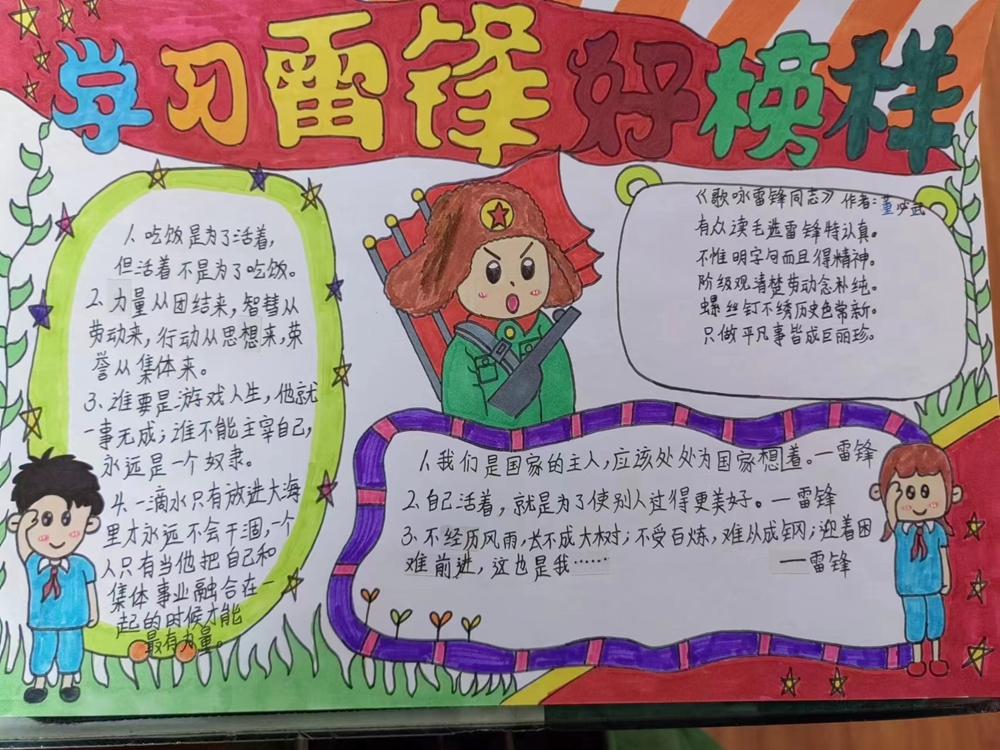 学习雷锋好榜样
1、吃饭是为了活着，
但活着不是为了吃饭。
2、力量从团结来，智彗从
劳动来，行动从思想来，荣
誉从集体来。
3、谁要是游戏人生，他就
一事无成；谁不能主宰自己，
永远是一个奴隶。
4、一滴水只有放进大海
里才永远不会干涸，一个
人只有当他把自己和
集体事业融合在一
起的时候才能
最有力量。
《歌咏雷锋同志》作者：董必武
有众读毛选雷锋特认真。
不惟明字句而且得精神。
阶级观清楚劳动念朴纯。
螺丝钉不绣历史色常新。
只做平凡事皆成巨丽珍。
1、我们是国家的主人，应该处处为国家想着。—雷锋
2、自己活着，就是为了使别人过得更美好。—雷锋
3、不经历风雨，长不成大树；不受百炼，难从成钢；迎着困
难前进，这也是我……　—雷锋